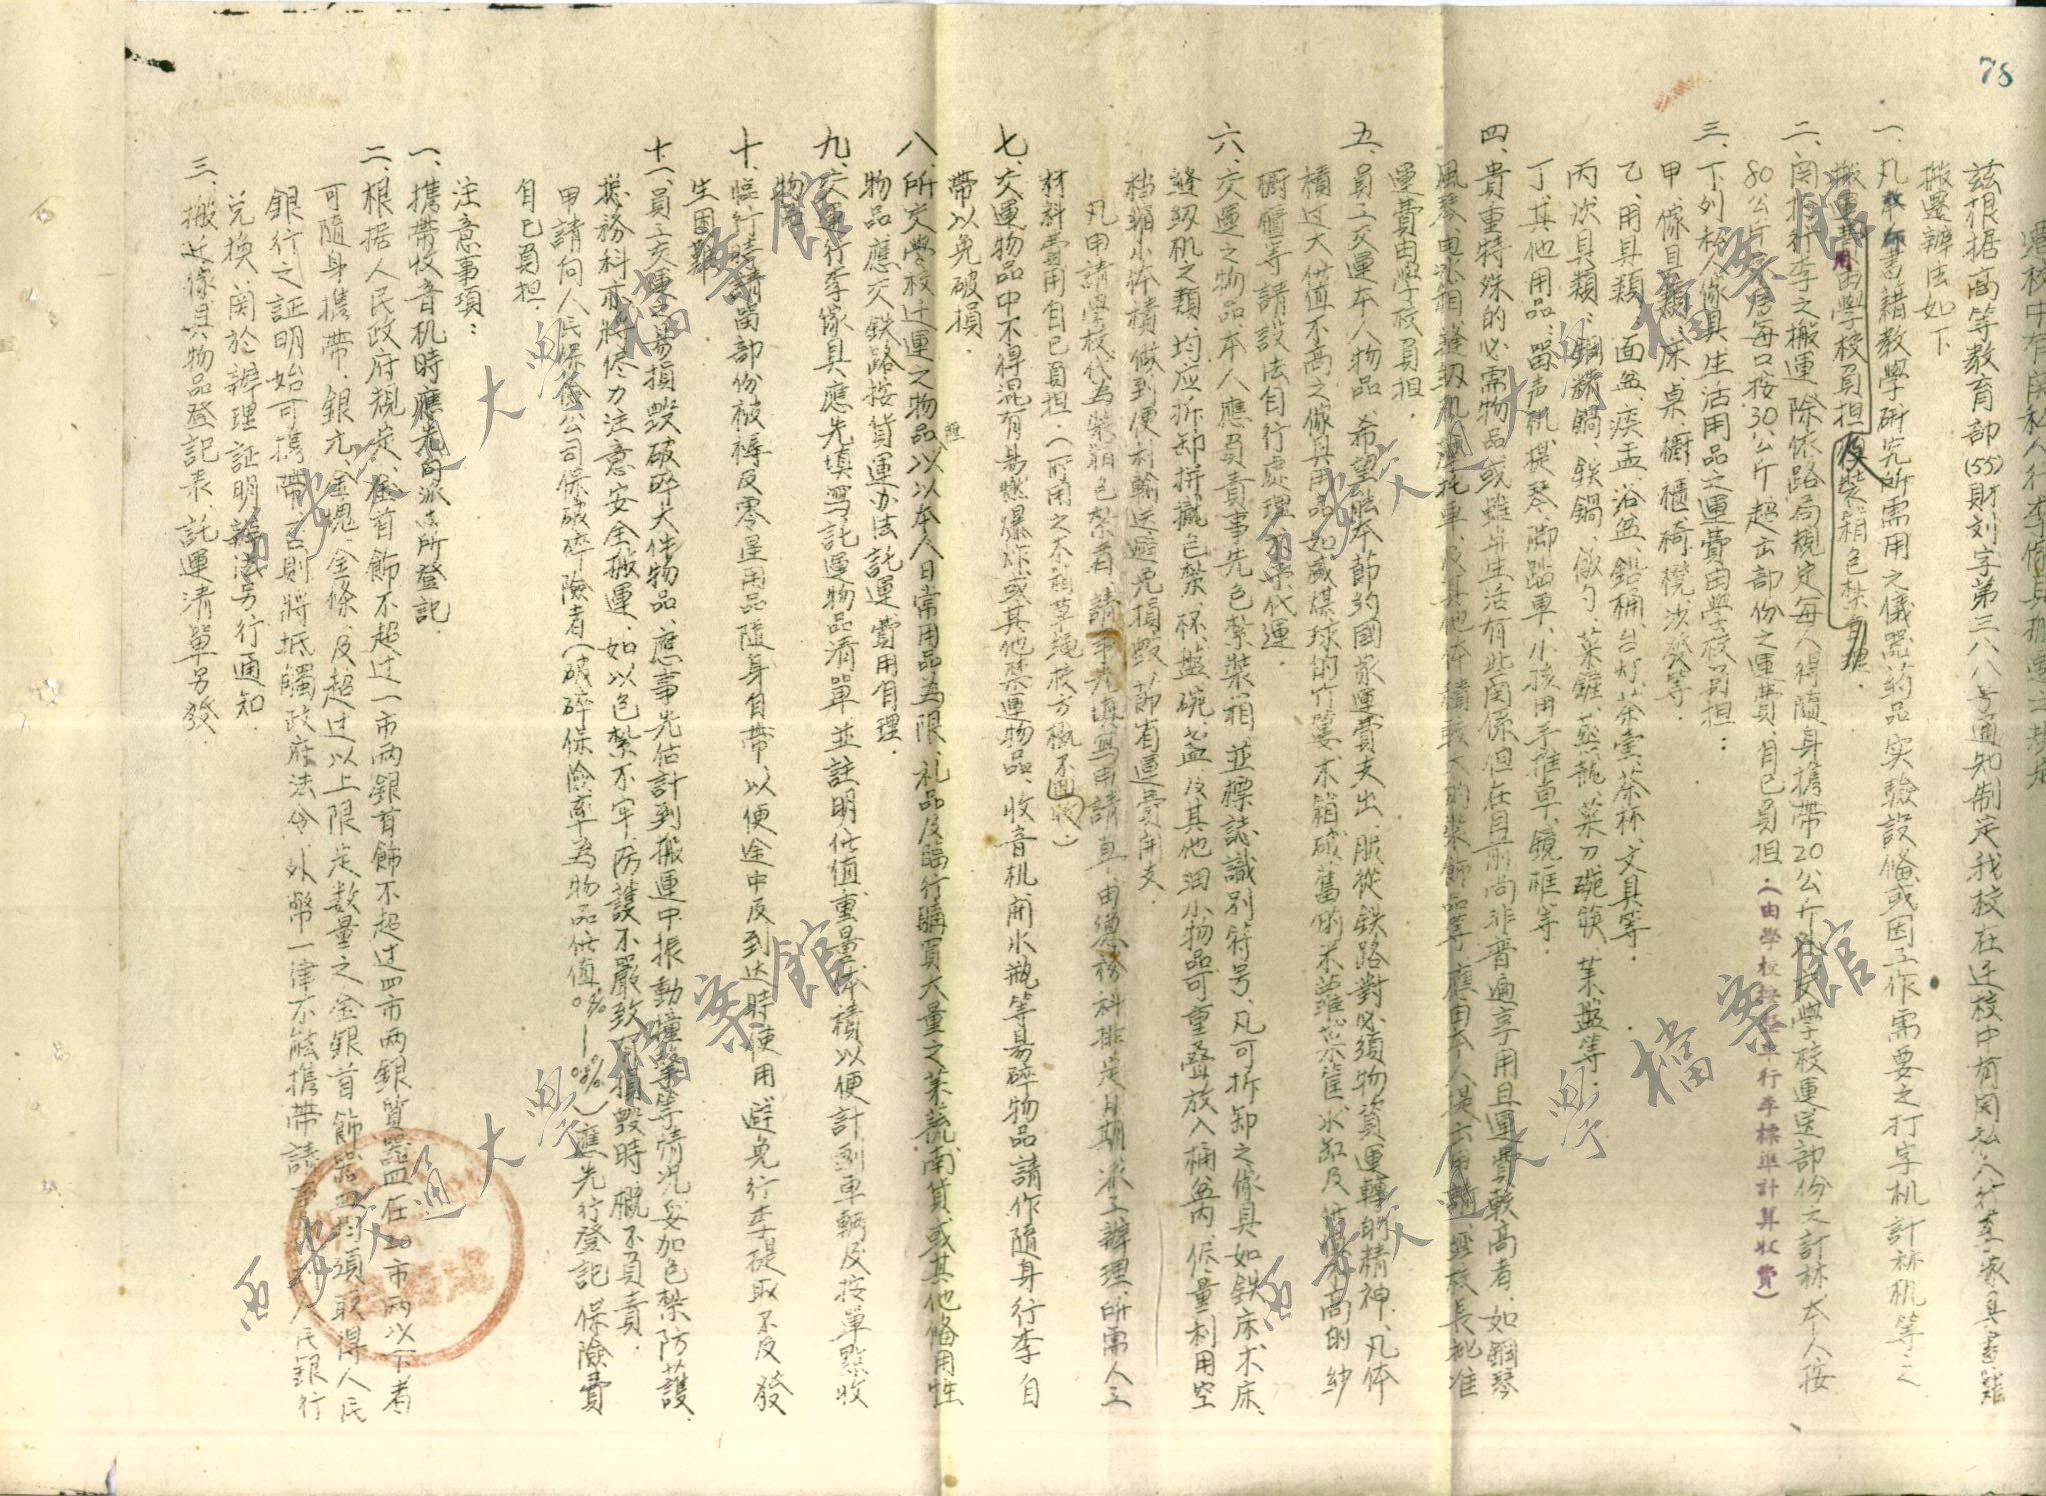 78
遷校中有関私人行李傢具搬運之規定
茲根据高等教育部(55)財刘字第三八八号通知制定我校在迁校中有関私人行李家具書籍
搬遷辦法如下
一、凡教師書籍教學研究所需用之儀器药品实驗設偹或因工作需要之打字机計祘机等之
搬運費用由學校員担及裝箱包紮
二、関於行李之搬運除依路局規定每人得隨身攜帶20公斤外，
80公斤每口按30公斤超出部份之運費，自已員担．(由學校
行李標準計算收費)
三、下列私人傢具生活用品之運費由學校員担：
甲、傢具類：床、桌、櫥、櫃、椅、櫈、沙發等．
乙、用具類：面盆、痰盂、浴盆、鉛桶、台灯、茶壼、茶杯、文具等．
丙、炊具類：鋼精鍋、鉄鍋、飯勺、菜鏟、蒸籠、菜刀、碗筷、菜盤等；
丁、其他用品：畄声机、提琴、脚踏車、小孩用手推車、鏡框等．
四、貴重特殊的必需物品或雖与生活有些関係但在目前尚非普遍享用且運費較高者，如鋼琴
風琴、电氷箱、縫級机、摩托車、及其他体積較大的裝飾品等，應由本人提出申請，經校長批准
運費由學校員担．
五、員工交運本人物品，希望能本節約國家運費支出，服從鉄路對必須物資運轉的精神，凡体
積过大價值不高之傢具用品如盛煤球的竹簍、木箱破舊的米蘿菜筐、水缸及價值不高的紗
櫥櫃等請設法自行處理勿需代運．
六、交運之物品本人應員責事先包紮裝箱，並標誌識别符号、凡可拆卸之傢具如鉄床、木床、
縫級机之類，均应拆卸拼攏包紮，杯、盤、碗、盆及其他細小物品可重叠放入桶盆內，侭量利用空
档縮小体積，做到便利輸送避免損毀節省運費開支．
凡申請學校代為裝箱包紮者，請事先填寫申請單，由總務科排定日期派工辦理，所需人工
材料費用自已員担．(所用之木箱草繩校方概不回收)
七、交運物品中不得混有易燃爆炸或其他禁運物品，收音机、開水瓶等易碎物品請作隨身行李自
帶以免破損．
八、所交學校迁運之物品應以本人日常用品為限，礼品及臨行購買大量之菜蔬南貨或其他俻用性
物品應交鉄路按貨運办法託運，費用自理．
九、交運行李傢具應先填寫託運物品清單，並註明价值重量体積以便計劃車輌及按單點收
物品
十、臨行時請留部份被褥及零星用品隨身自帶以便途中及到达時使用，避免行李提取不及發
生困難
十一、員工交運之易損毀破碎大件物品，應事先估計到搬運中振動撞擊等情况妥加包紮防護，
總務科亦將侭力注意安全搬運，如以包紮不牢，防護不嚴致有損毀時，概不員責．
申請向人民保險公司保破碎險者(破碎保險率為物品价值)應先行登記，保險費
自已員担．
注意事項：
一、攜帶收音机時應先向派出所登記．
二、根据人民政府規定，金首飾不超过一市兩銀首飾不超过四市兩銀質器皿在20市兩以下者
可隨身攜帶，銀元、金塊、金條、及超过以上限定数量之金銀首飾器皿均須取得人民
銀行之証明始可攜帶，否則將抵觸政府法令，外幣一律不能攜帶請事先向人民銀行
兌換，関於辦理証明辦法另行通知．
三、搬迁傢具物品登記表、託運清單另發．
西安交通大學檔案館